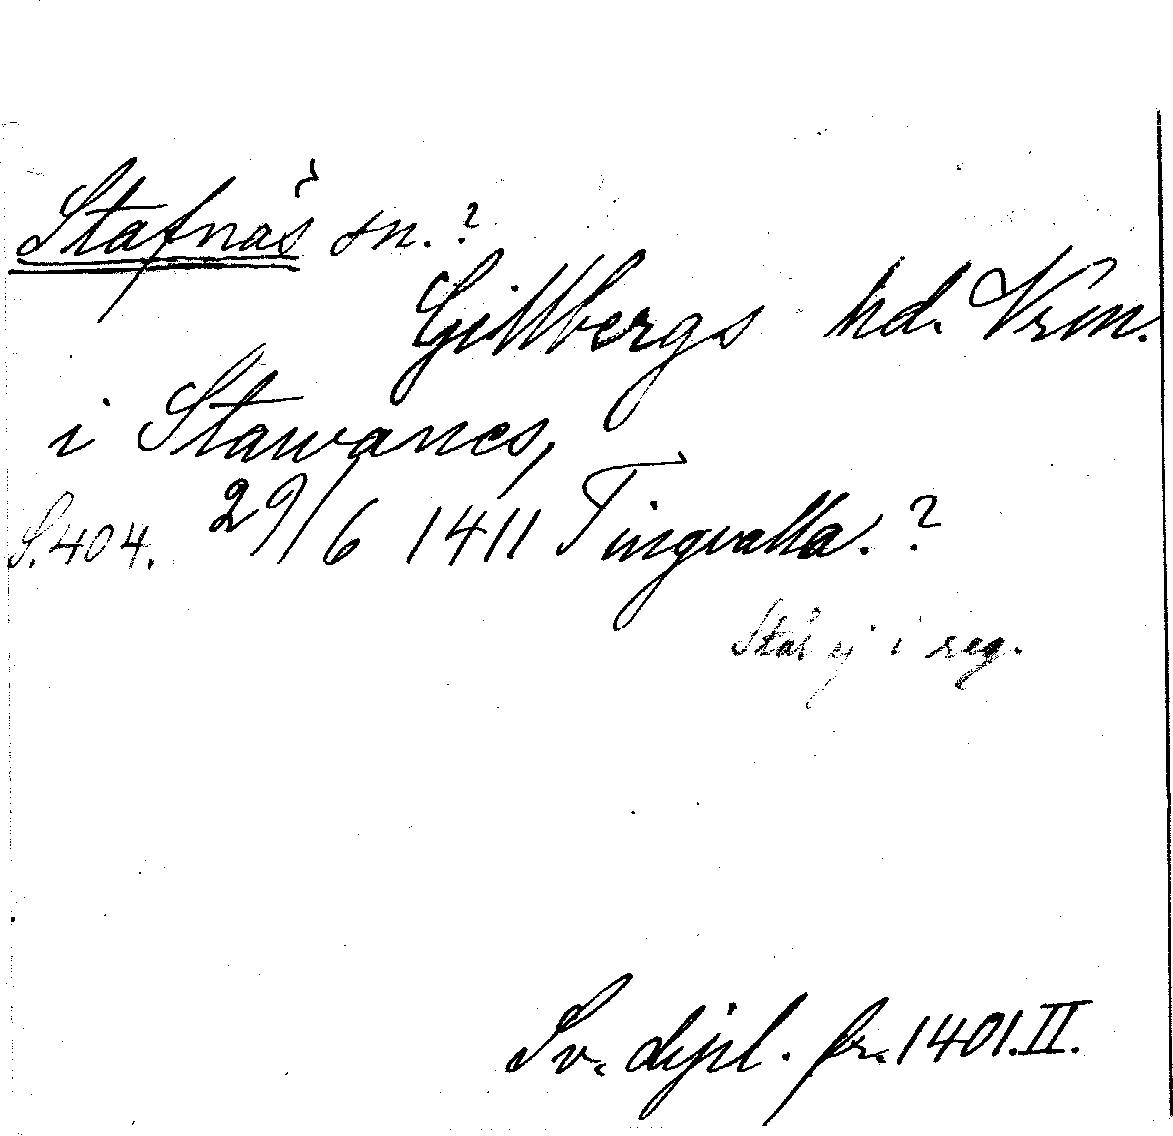 Stafnäs sn.?
Gillbergs hd. Vrm.
i Stawanes,
S.404. 29/6 1411 Tingvalla.?
Står ej i reg.
Sv. dipl. fr. 1401. II.